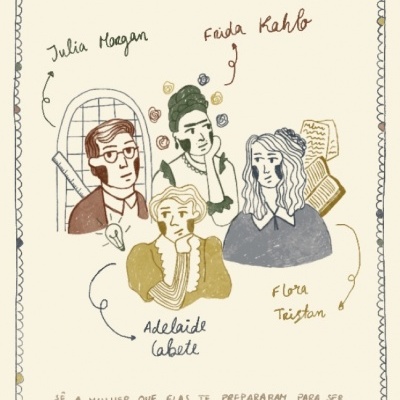 Julia Morgan
Frida Kahlo
Adelaide
Cabete
Flora
Tristan
SÊ A MULHER QUE ELAS TE PREPARARAM PARA SER